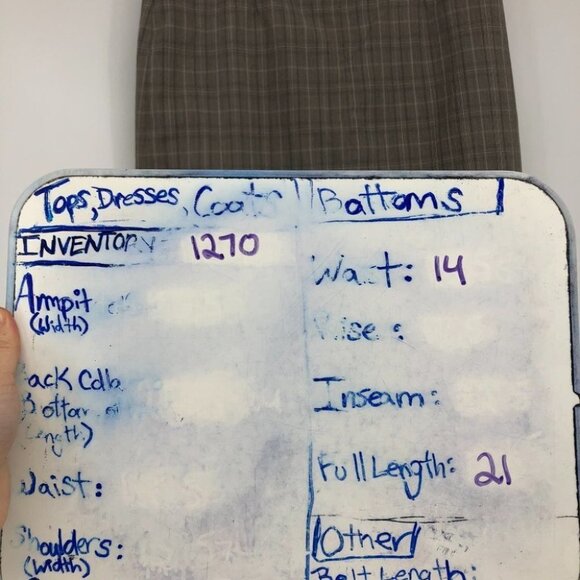 Tops, Dresses, Coats
INVENTORY 1270
Armpit
(Width)
ack Colla
ottom of
ength)
Waist:
Shoulders:
(Width)
Bottoms
Waist: 14
Rise:
Inseam:
Full Length: 21
Other
Belt Length: